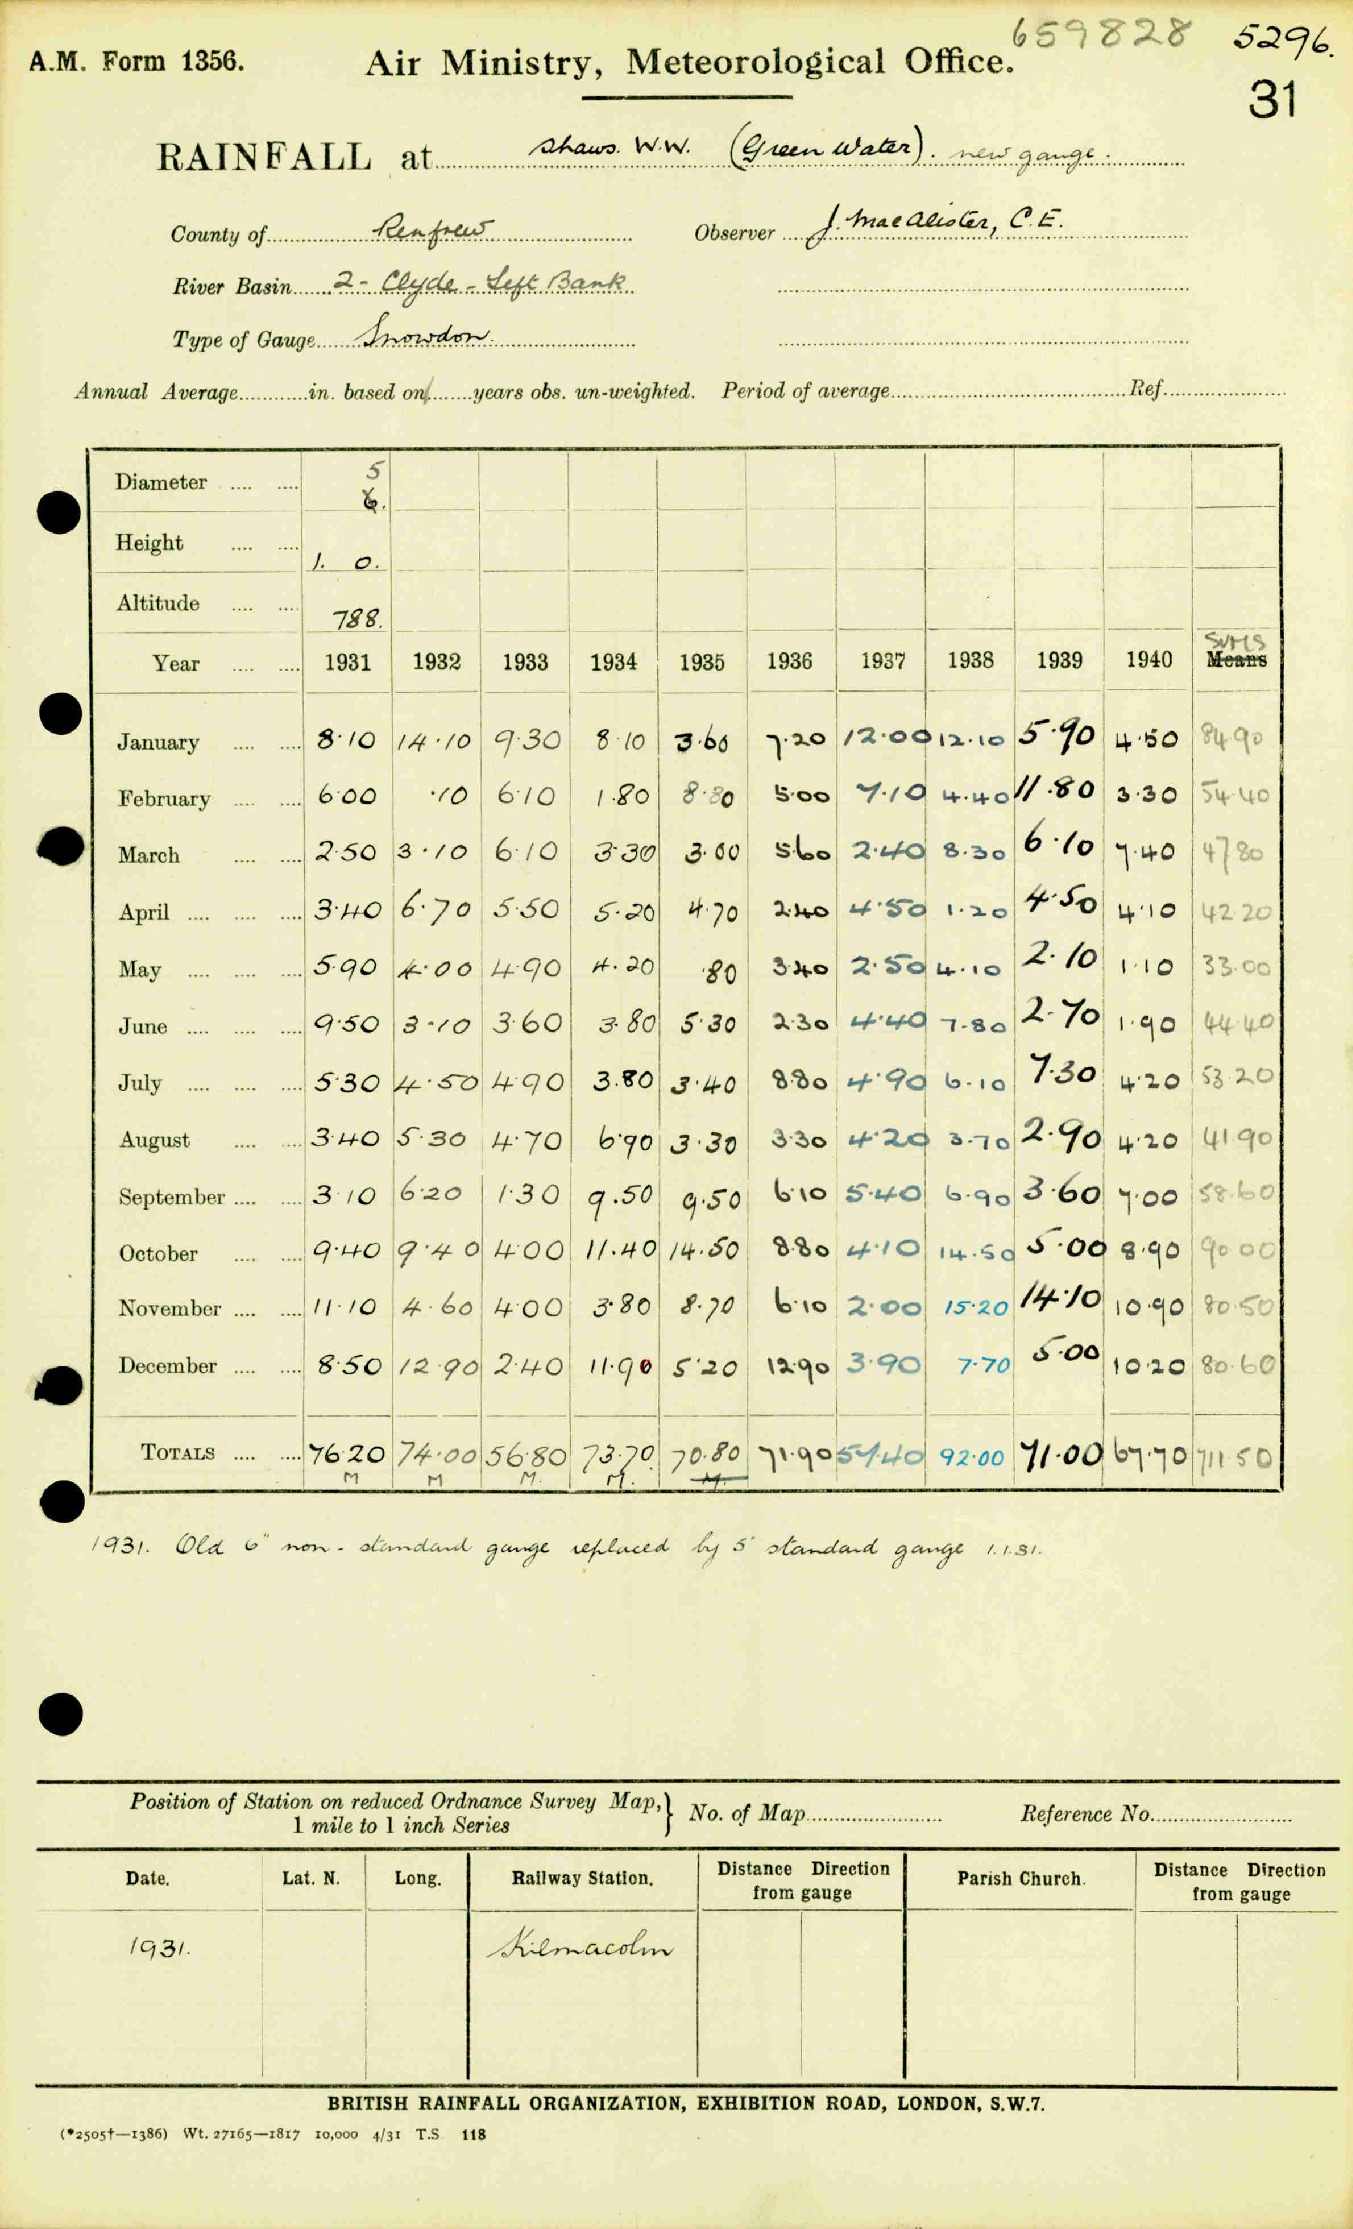 659828 5296.
A.M. Form 1356. Air Ministry, Meteorological Office.
31
RAINFALL at Shaws. W.W. (Green Water). new gauge.
County of Renfrew Observer J. MacAlister, C.E.
River Basin 2- Clyde - Left Bank
Type of Gauge Snowdon.
Annual Average............in. based on.........years obs. un-weighted. Period of average.................... Ref....................
Diameter .... .... 5 6.
Height .... .... 1. 0.
Altitude .... .... 788.
Year .... .... 1931 1932 1933 1934 1935 1936 1937 1938 1939 1940 SUMS Means
January .... .... 8·10 14·10 9·30 8·10 3·60 7·20 12·00 12·10 5·90 4·50 84·90
February .... .... 6·00 ·10 6·10 1·80 8·80 5·00 7·10 4·40 11·80 3·30 54·40
March .... .... 2·50 3·10 6·10 3·30 3·00 5·60 2·40 8·30 6·10 7·40 47·80
April .... .... .... 3·40 6·70 5·50 5·20 4·70 2·40 4·50 1·20 4·50 4·10 42·20
May .... .... .... 5·90 4·00 4·90 4·20 ·80 3·40 2·50 4·10 2·10 1·10 33·00
June .... .... .... 9·50 3·10 3·60 3·80 5·30 2·30 4·40 7·80 2·70 1·90 44·40
July .... .... .... 5·30 4·50 4·90 3·80 3·40 8·80 4·90 6·10 7·30 4·20 53·20
August .... .... 3·40 5·30 4·70 6·90 3·30 3·30 4·20 3·70 2·90 4·20 41·90
September .... .... 3·10 6·20 1·30 9·50 9·50 6·10 5·40 6·90 3·60 7·00 58·60
October .... .... 9·40 9·40 4·00 11·40 14·50 8·80 4·10 14·50 5·00 8·90 90·00
November .... .... 11·10 4·60 4·00 3·80 8·70 6·10 2·00 15·20 14·10 10·90 80·50
December .... .... 8·50 12·90 2·40 11·90 5·20 12·90 3·90 7·70 5·00 10·20 80·60
TOTALS .... .... 76·20 74·00 56·80 73·70 70·80 71·90 57·40 92·00 71·00 67·70 711·50
M M M. M. M.
1931. Old 6" non-standard gauge replaced by 5" standard gauge 1.1.31.
Position of Station on reduced Ordnance Survey Map, } No. of Map........................ Reference No........................
1 mile to 1 inch Series
Date. Lat. N. Long. Railway Station. Distance Direction from gauge Parish Church. Distance Direction from gauge
1931. Kilmacolm
BRITISH RAINFALL ORGANIZATION, EXHIBITION ROAD, LONDON, S.W.7.
(*2505†—1386) Wt. 27165—1817 10,000 4/31 T.S. 118